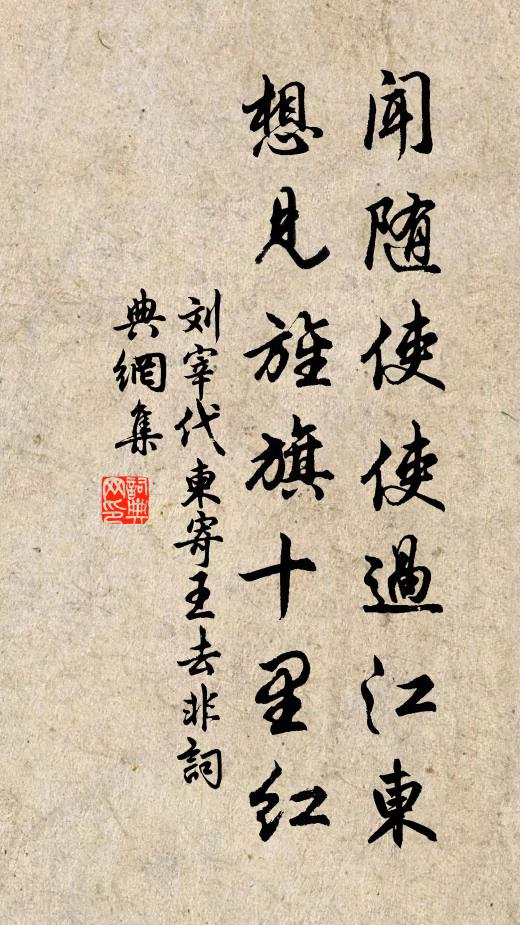 闻随使使過江東
想見旌旗十里紅
刘宰代柬寄王去非詞
典網集
詞典网印